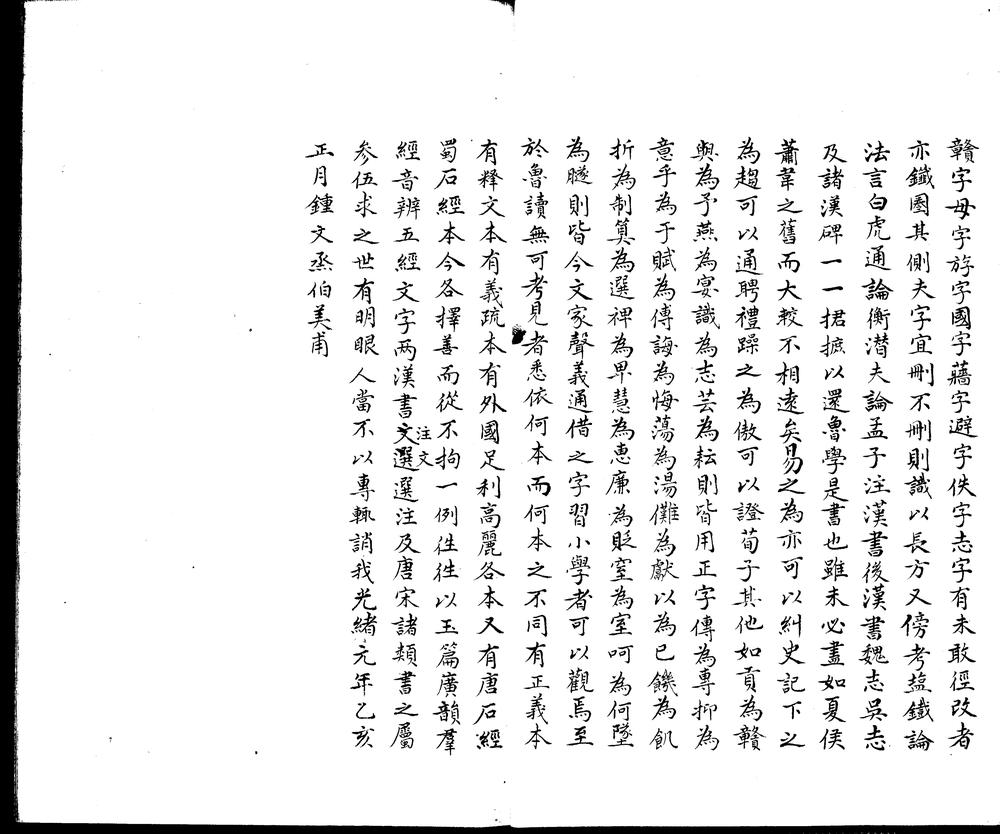 贛字毋字斿字國字蘠字避字佚字志字有未敢徑改者
亦鐵圈其側夫字宜刪不刪則識以長方又傍考塩鐵論
法言白虎通論衡潛夫論孟子注漢書後漢書魏志吳志
及諸漢碑一一捃摭以還魯學是書也雖未必盡如夏侯
蕭韋之舊而大較不相遠矣昜之為亦可以糾史記下之
為趨可以通聘禮躁之為傲可以證荀子其他如貢為贛
與為予燕為宴識為志芸為耘則皆用正字傳為專抑為
意乎為于賦為傅誨為悔蕩為湯儺為獻以為已饑為飢
折為制筭為選裨為卑慧為惠廉為貶窒為室呵為何墜
為隧則皆今文家聲義通借之字習小學者可以觀焉至
於魯讀無可考見者悉依何本而何本之不同有正義本
有釋文本有義疏本有外國足利高麗各本又有唐石經
蜀石經本今各擇善而從不拘一例徃徃以玉篇廣韻羣
經音辨五經文字两漢書注文文選選注及唐宋諸類書之屬
參伍求之世有明眼人當不以專輒誚我光緒元年乙亥
正月鍾文烝伯美甫